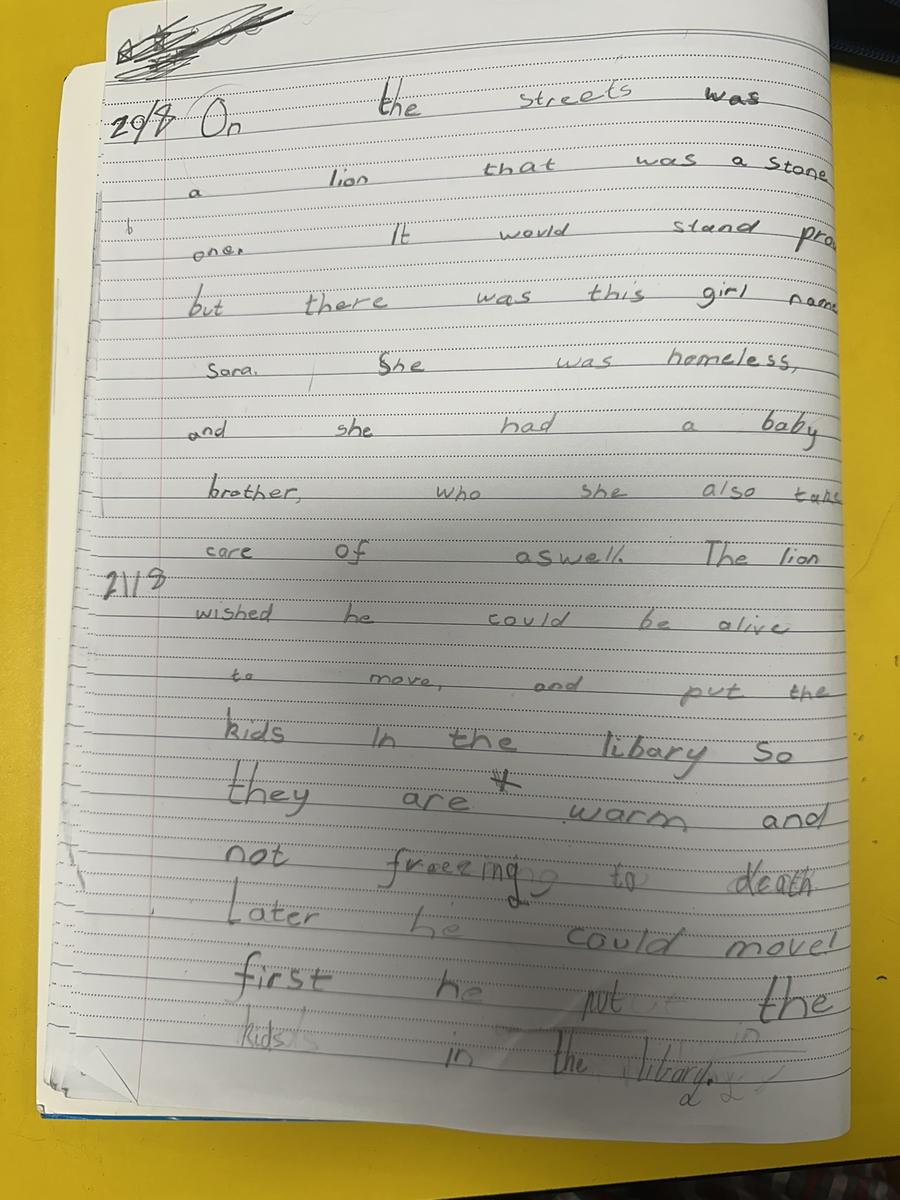 20/8 On the streets was
a lion that was a stone
one. It would stand pro
but there was this girl name
Sara. She was homeless,
and she had a baby
brother, who she also take
care of aswell. The lion
21/8
wished he could be alive
to move, and put the
kids in the libary so
they are warm and
not freezing to death.
Later he could move!
first he put the
kids in the libary.